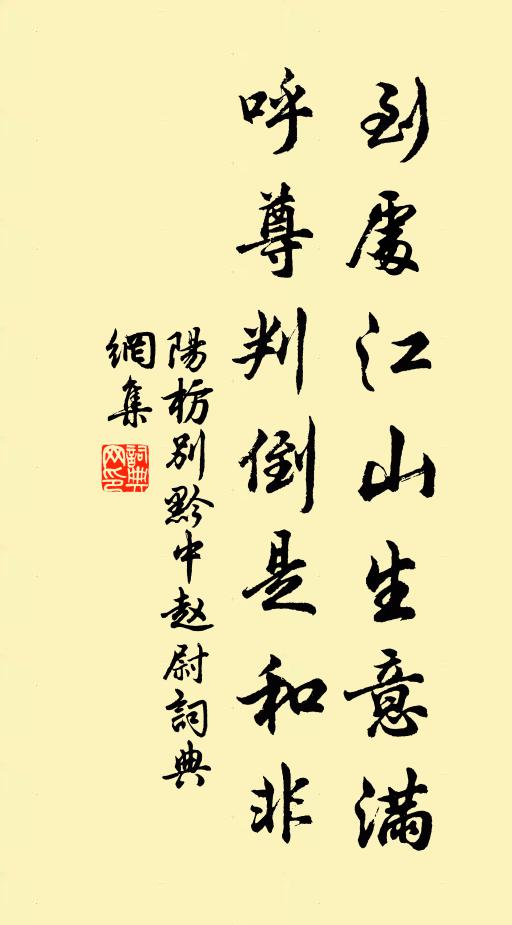 到處江山生意滿
呼尊判倒是和非
陽枥別黔中赵尉詞典
網集
詞典
网印